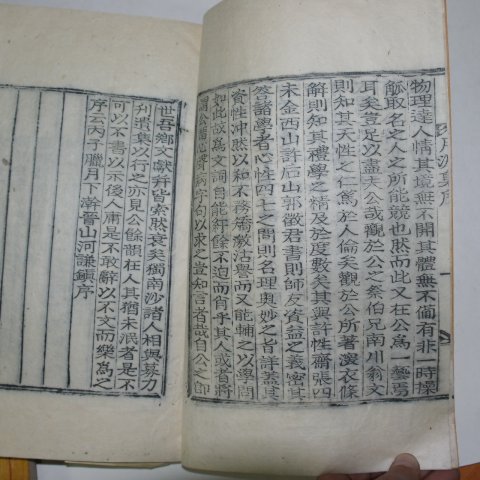 物理達人情其境無不開其體無不備有非一時操
觚取名之人之所能競也然而此又在公爲一藝焉
耳矣豈足以盡夫公哉觀於公之祭伯兄南川翁文
則知其天性之仁篤於人倫矣觀於公所著深衣條
解則知其禮學之精及於度數矣其與許性齋張四
未金西山許后山郭徵君書則師友資益之義密其
答諸學者心性四七之問則名理奧妙之旨詳蓋其
資性冲然以和不務矯沽譽而又能輔之以學問
如此故爲文詞自能紆餘不迫而肖乎其人或者將
謂公字句以求之豈知言者哉自公之卽
世吾鄕文獻幷皆索然衰矣獨南沙諸人相與募力
刊遺集以行之亦見公餘韻在人其猶未泯者是不
可以不書以示後人肅是不敢辭以不文而樂爲之
序云丙子臘月下澣晉山河謙鎭序